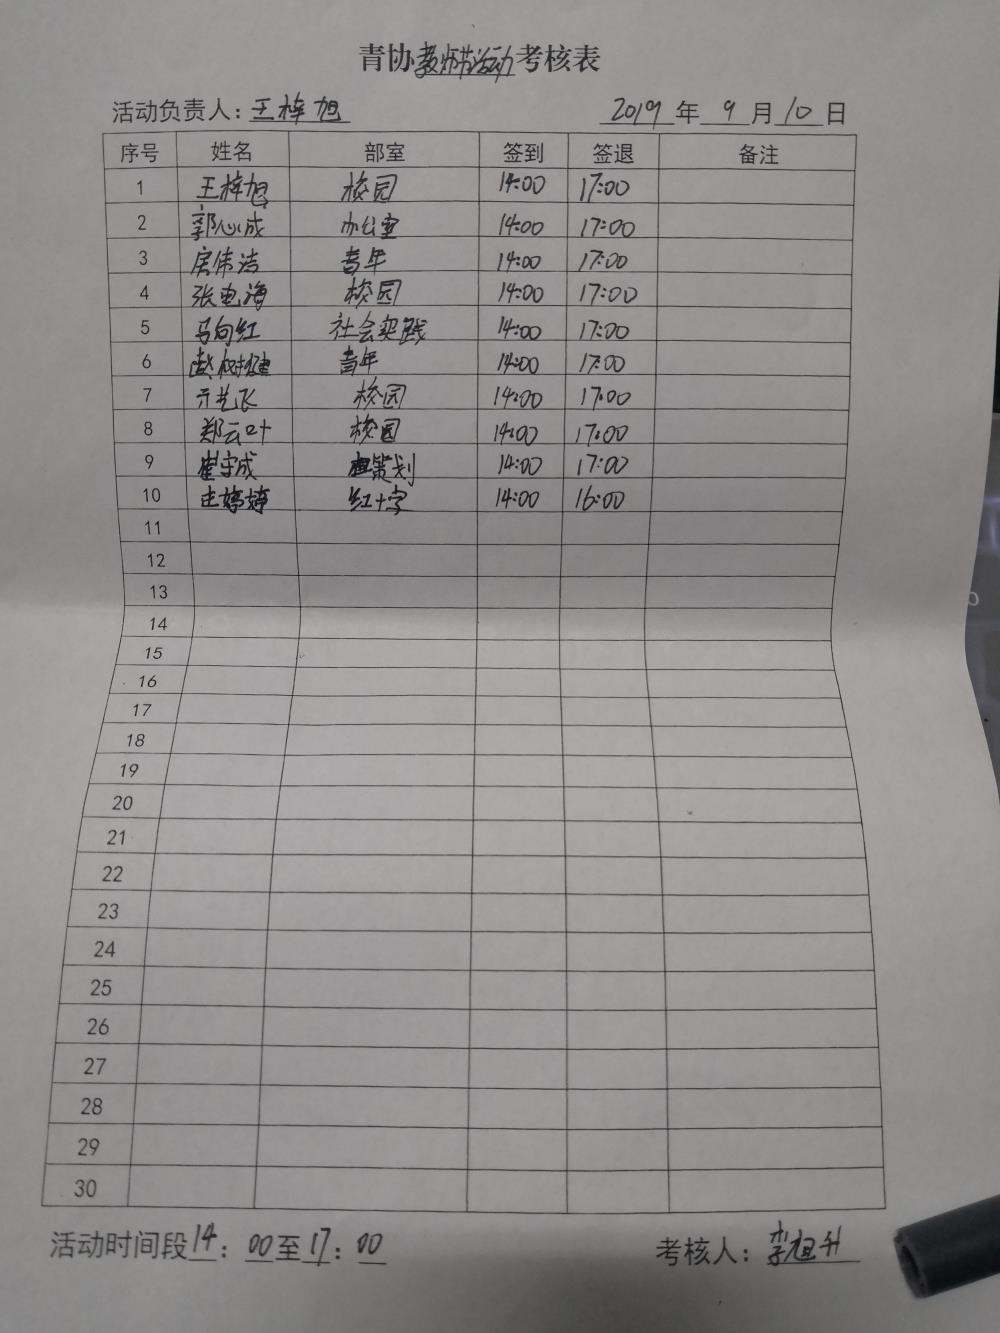 青协教师节活动考核表
活动负责人：王梓旭 2019年9月10日
序号 姓名 部室 签到 签退 备注
1 王梓旭 校园 14:00 17:00
2 郭心成 办公室 14:00 17:00
3 房伟洁 青年 14:00 17:00
4 张电海 校园 14:00 17:00
5 马向红 社会实践 14:00 17:00
6 赵树健 青年 14:00 17:00
7 亓艺飞 校园 14:00 17:00
8 郑云叶 校园 14:00 17:00
9 崔宇成 策划 14:00 17:00
10 庄婷婷 红十字 14:00 16:00
11
12
13
14
15
16
17
18
19
20
21
22
23
24
25
26
27
28
29
30
活动时间段14：00至17：00 考核人：李祖升